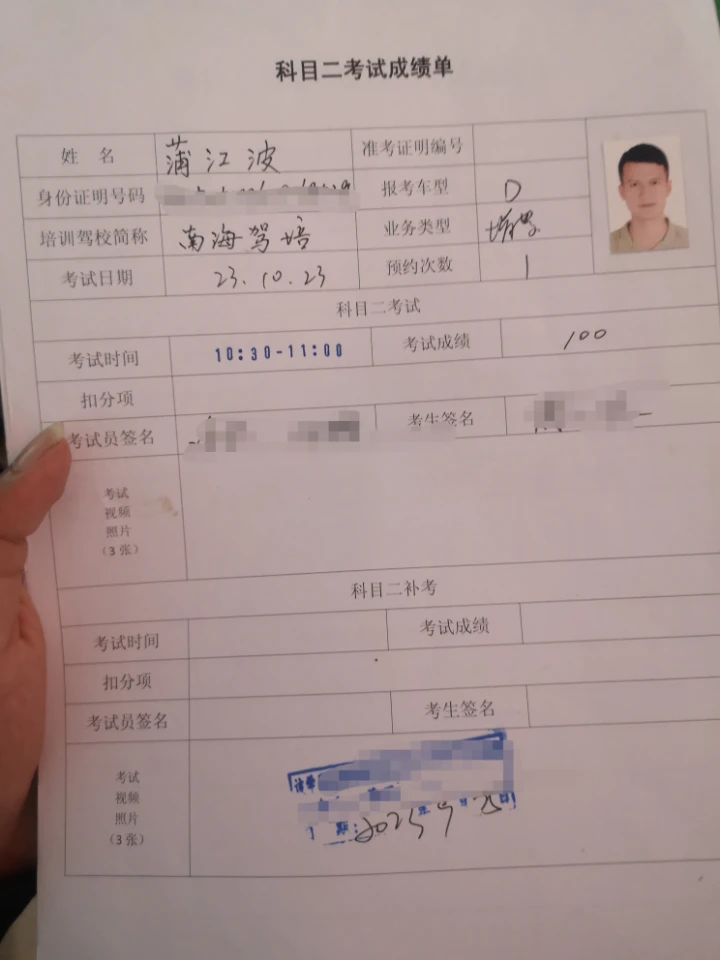 科目二考试成绩单
姓 名 蒲江波 准考证明编号
身份证明号码 报考车型 D
培训驾校简称 南海驾培 业务类型 增驾
考试日期 23.10.23 预约次数 1
科目二考试
考试时间 10:30-11:00 考试成绩 100
扣分项
考试员签名 考生签名
考试
视频
照片
(3张)
科目二补考
考试时间 考试成绩
扣分项
考试员签名 考生签名
考试
视频
照片
(3张)
2023年9月25日